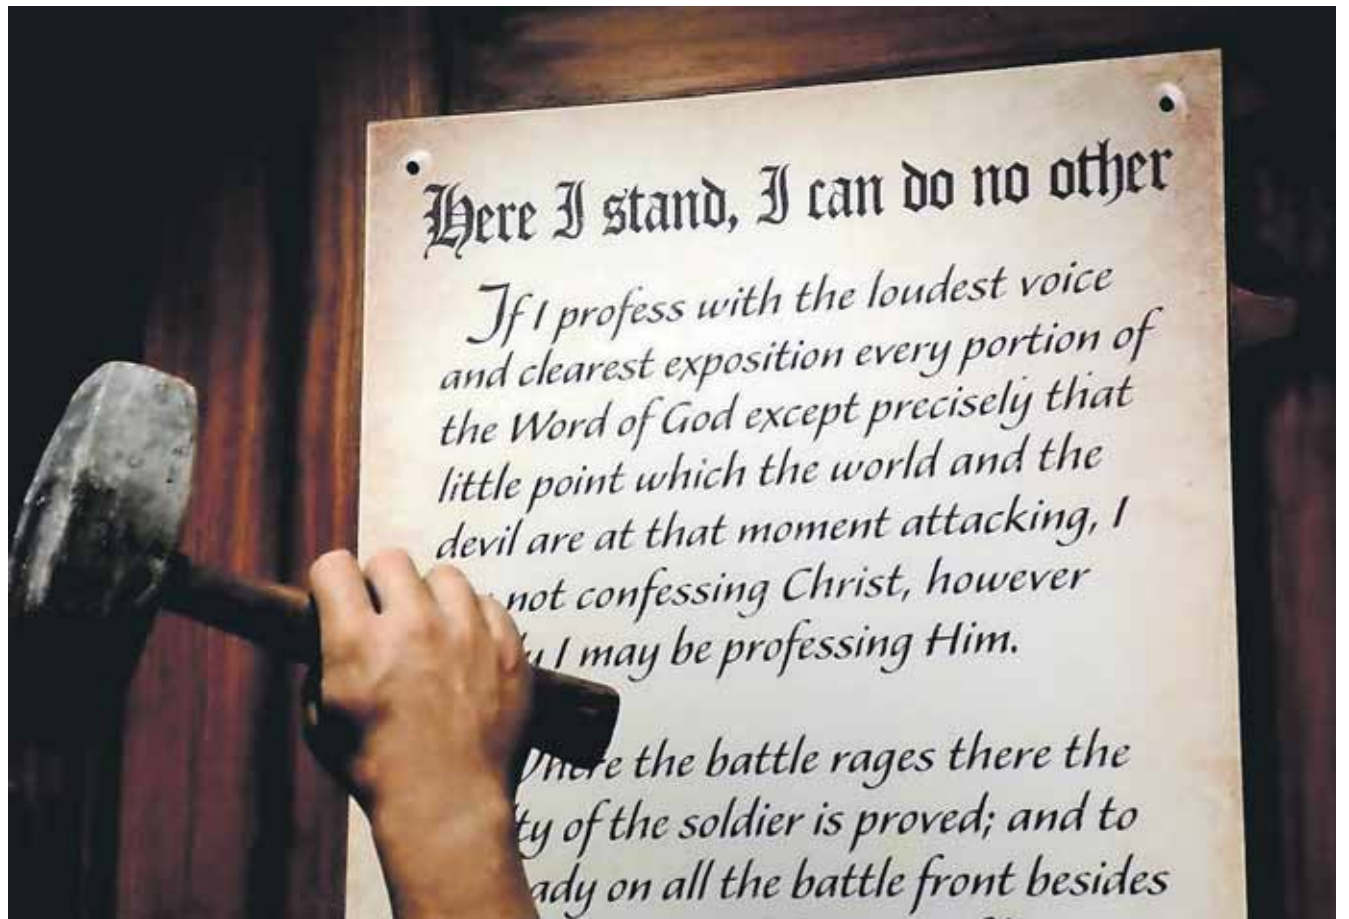 Here I stand, I can do no other
If I profess with the loudest voice
and clearest exposition every portion of
the Word of God except precisely that
little point which the world and the
devil are at that moment attacking, I
not confessing Christ, however
I may be professing Him.
Where the battle rages there the
of the soldier is proved; and to
on all the battle front besides